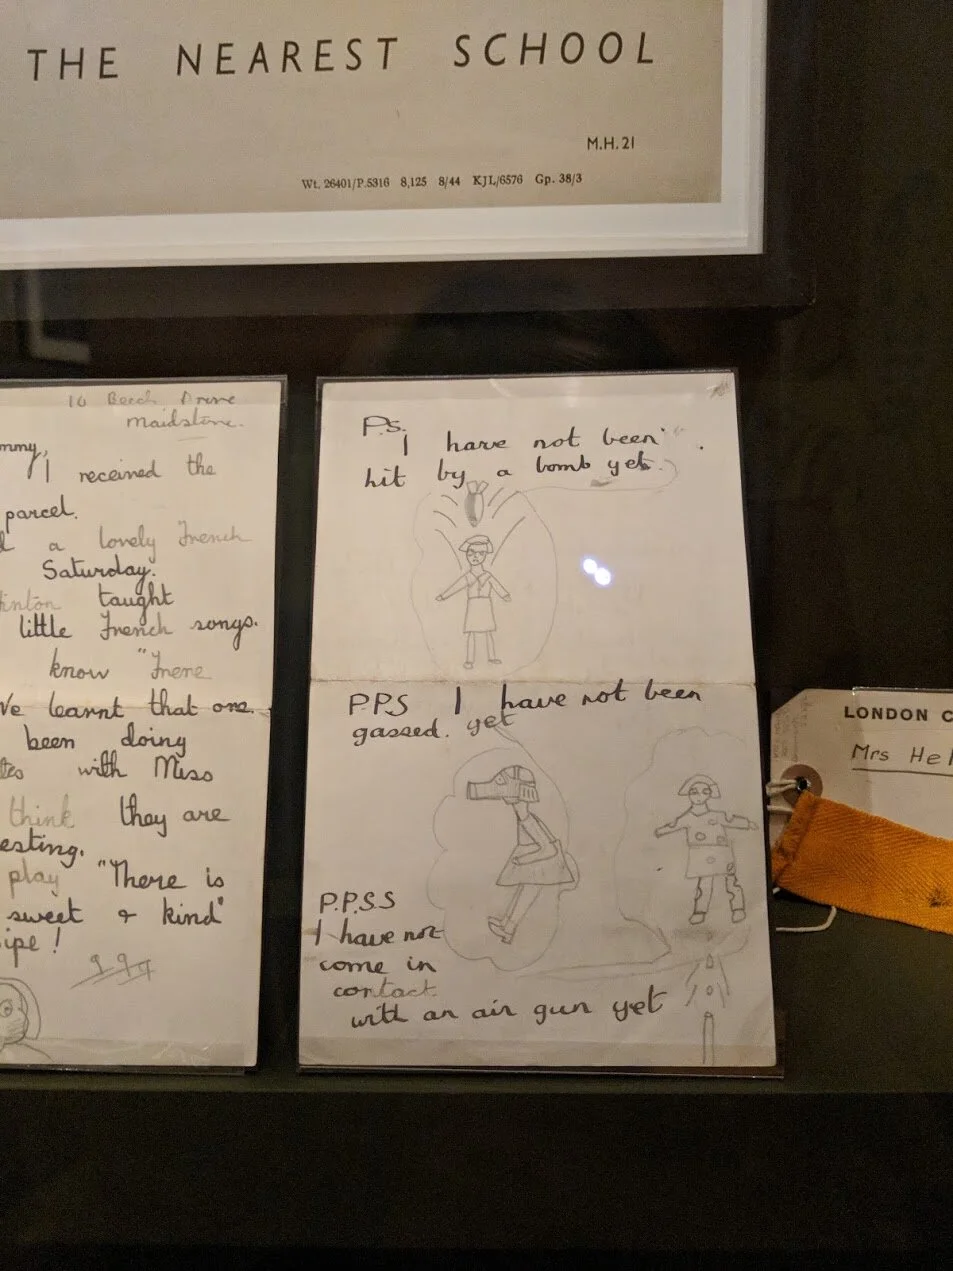 THE NEAREST SCHOOL
M.H. 21
Wt. 26401/P.5316 8,125 8/44 KJL/6576 Gp. 38/3
10 Beech Drive
Maidstone.
mmy,
I received the
parcel.
a lovely French
Saturday.
inton taught
little French songs.
know "Frere
We learnt that one.
been doing
tes with Miss
think they are
esting.
play "There is
sweet & kind"
ipe!
P.S.
I have not been
hit by a bomb yet.
P.P.S I have not been
gassed. yet
P.P.S.S
I have not
come in
contact
with an air gun yet
LONDON C
Mrs Hel